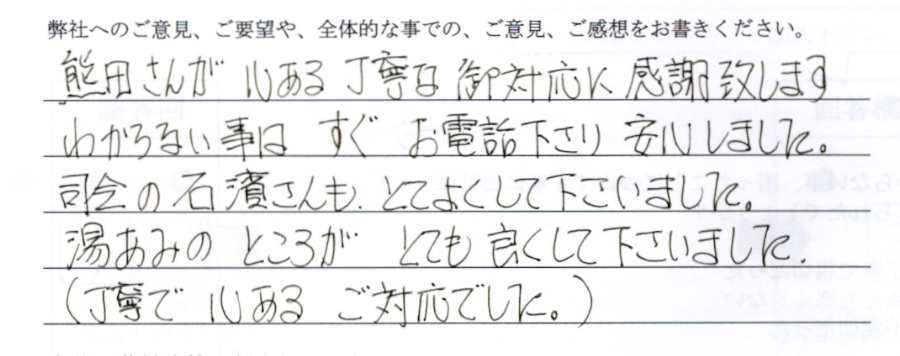 弊社へのご意見、ご要望や、全体的な事での、ご意見、ご感想をお書きください。
熊田さんが 心ある丁寧な御対応に感謝致します
わからない事は すぐ お電話下さり 安心しました。
司会の石濱さんも、とてもよくして下さいました。
湯あみの ところが とても 良くして下さいました。
(丁寧で 心ある ご対応でした。)